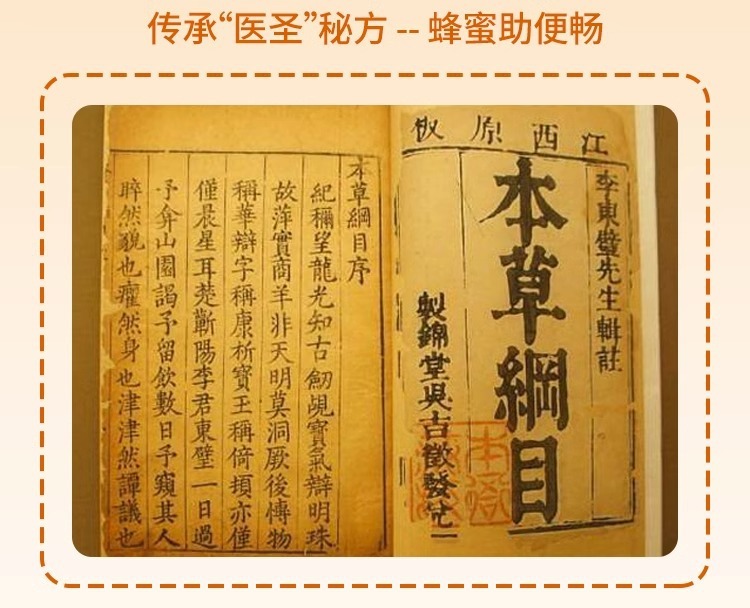 传承“医圣”秘方 -- 蜂蜜助便畅
江西原板
李東璧先生輯註
本草綱目
製錦堂吳吉徵發兌
本草綱目序
紀稱望龍光知古劒覘寶氣辯明珠
故萍實商羊非天明莫洞厥後博物
稱華辯字稱康析寶玉稱倚頓亦僅
僅晨星耳楚蘄陽李君東璧一日過
予弇山園謁予留飲數日予窺其人
睟然貌也癯然身也津津然譚議也